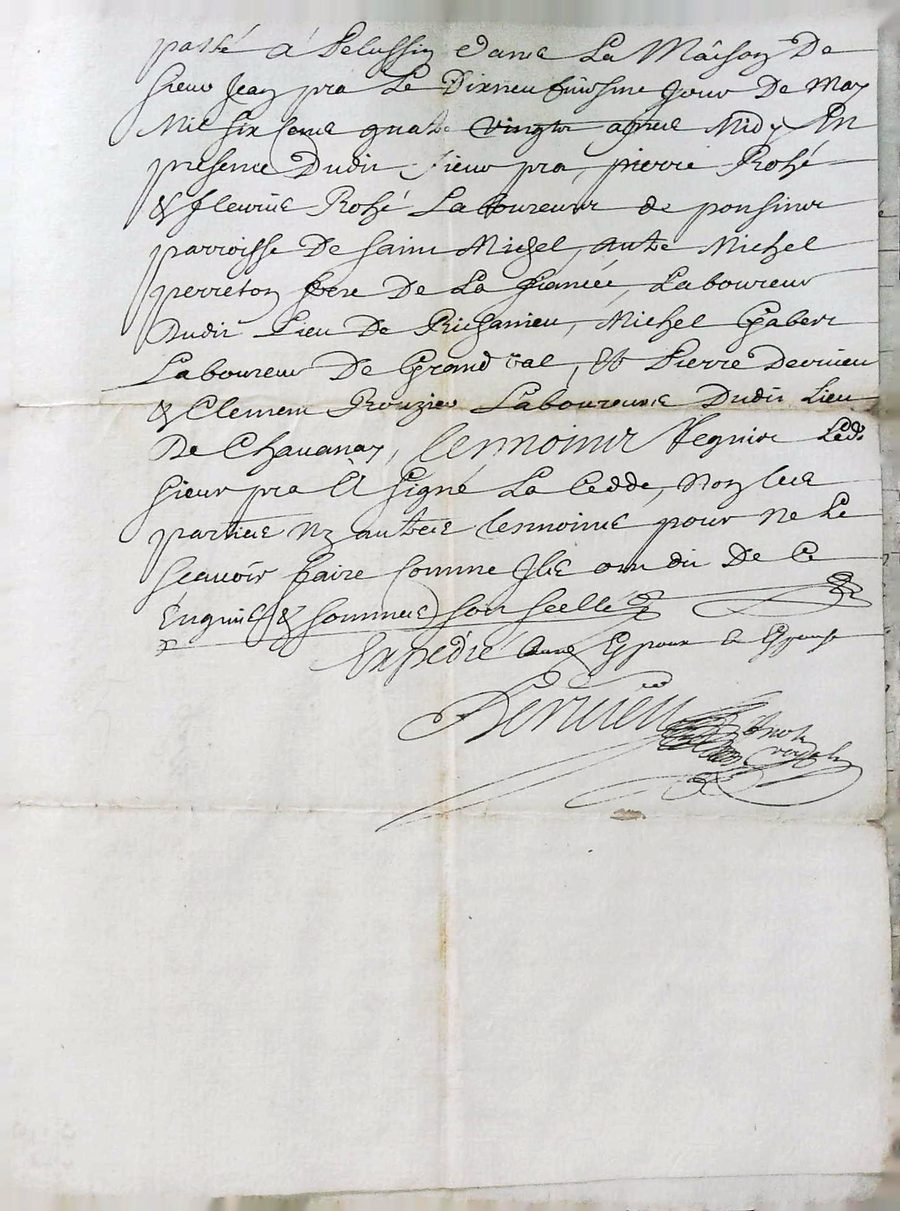 passé à Pelussin dans La Maison De
sieur Jean pra Le Dixneufuiesme Jour De May
Mil six Cens quatre vingtz apres Midy En
presence Dudit sieur pra, pierre Rohé
& fleurie Rohé Laboureurs de ponsins
parroisse De saint Michel, autre Michel
perreton frere De La fiancée, Laboureur
Dudit Lieu De Richanieu, Michel Gabert
Laboureur De Grand val, Et Pierre Dervieu
& Clement Rouzier Laboureurs Dudit Lieu
De Chauanay, tesmoins Requis Led.
sieur pra A signé La Cedde, Non lces
parties Ny autres tesmoins pour Ne Le
scauoir faire Comme Ils ont dit De Ce
Enquis & sommes son scellé
Expedié aud. Espoux &
Dervieu not.
royal